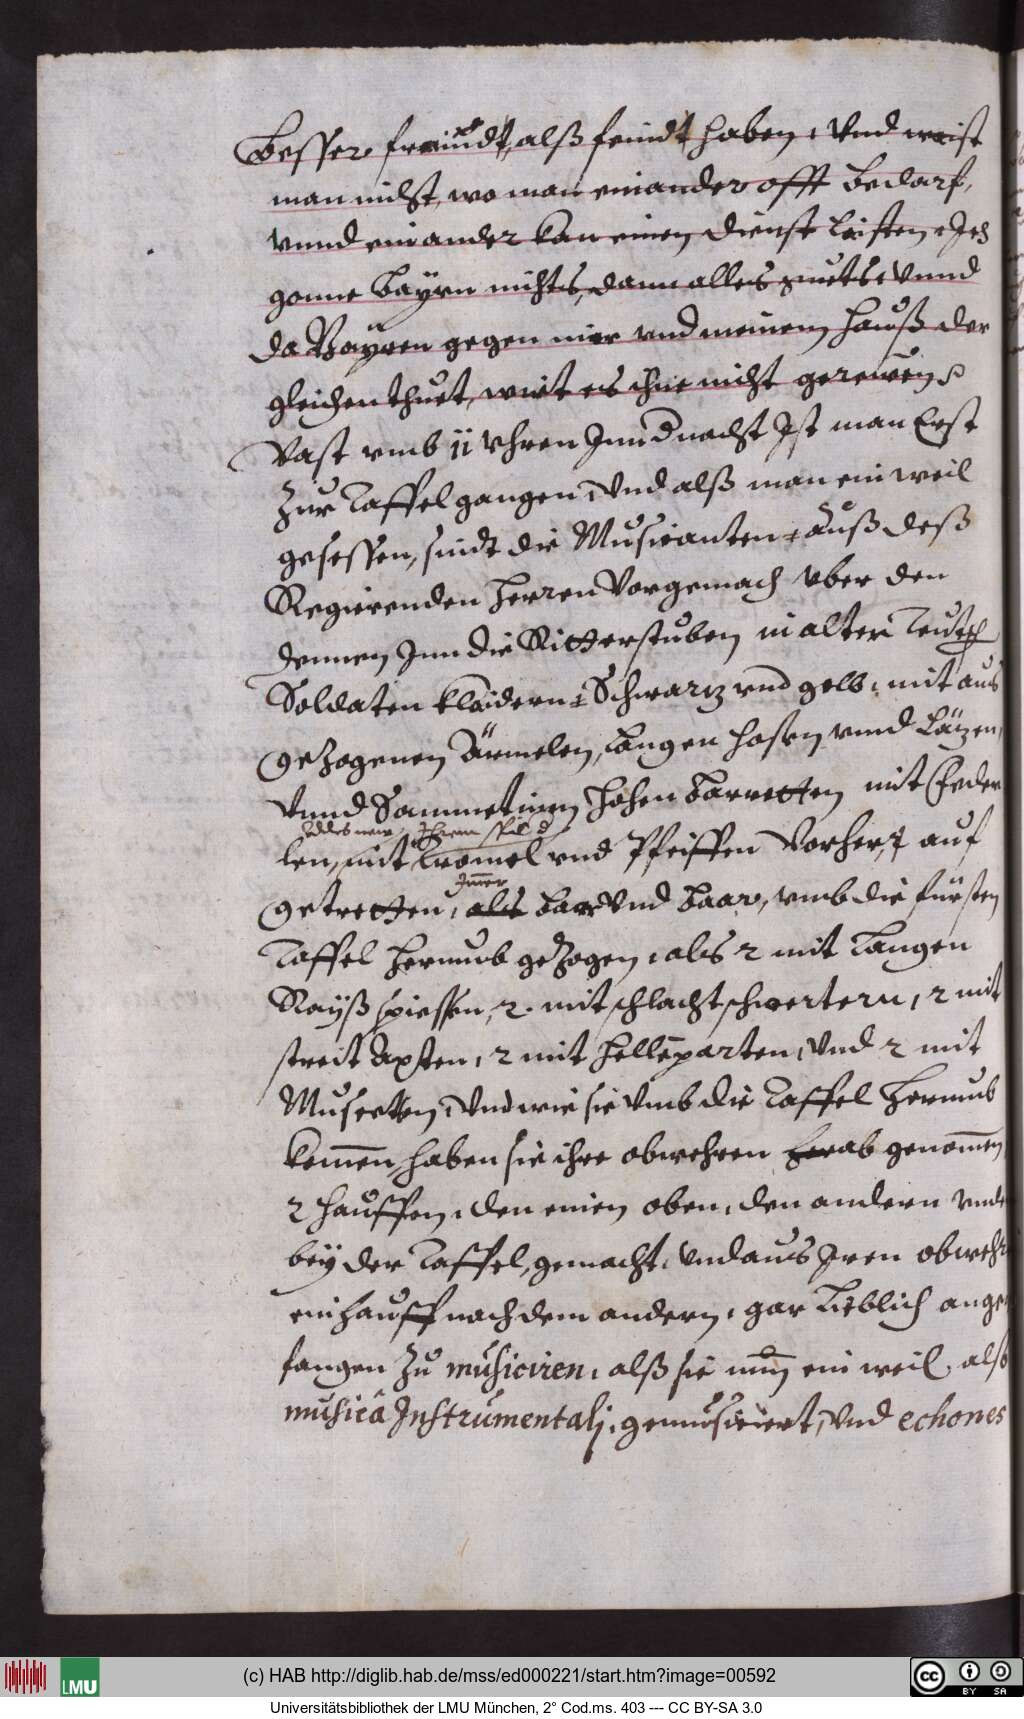 besser freündt, alß feindt haben, Vnd waist
man nicht, wo man einander offt bedarf,
vnnd einander kan einen dienst laisten, Ich
gonne Bayrn nichts, dann alles guets, Vnnd
da Bayren gegen mier vnd meinem hauß der
gleichen thuet, wirt es ihne nicht gerewen.
Vast vmb 11 Vhren Inn d nacht Ist man Erst
Zur Taffel gangen, Vnd alß man ein weil
gesessen, sindt die Musicanten, auß deß
Regierenden herren Vorgemach vber den
Innen Inn die Ritterstuben in alter Teutsch
Soldaten klaidern, Schwartz vnd gelb, mit aus
gezogenen Ärmelen, langen hosen vnnd Lätzen,
Vnnd Sammetinen hohen barretten mit Feder
len, mit Tromel vnd Pfeiffen Vorher, auf
Immer
getretten, als baar Vnd baar, vmb die fürsten
Taffel herumb gezogen, als 2 mit langen
Rayß spiessen, 2. mit schlachtschwertern, 2 mit
streit Axsten, 2 mit helleparten, Vnd 2 mit
Museten, Vnd wie sie Vmb die Taffel herumb
komen, haben sie ihre obwehren herab genomen
2 hauffen, den einen oben, den andern vnde
bey der Taffel, gemacht, Vnd aus Iren obwehr
ein hauff nach dem andern, gar lieblich ange
fangen zu musiciren, alß sie nun ein weil, also
musicâ Instrumentalj, gemusiciert, Vnd echones
(c) HAB http://diglib.hab.de/mss/ed000221/start.htm?image=00592
LMU
cc BY SA
Universitätsbibliothek der LMU München, 2° Cod.ms. 403 --- CC BY-SA 3.0